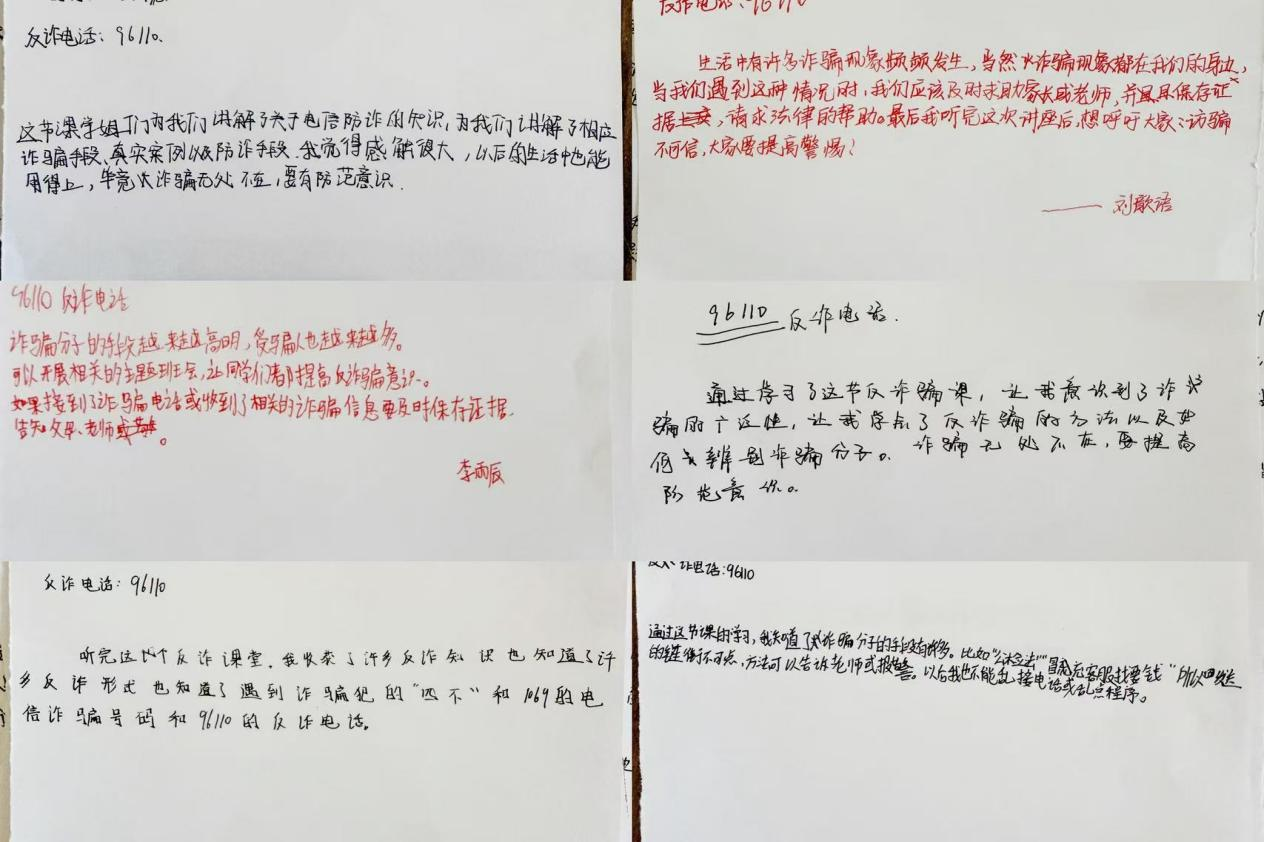 反诈电话：96110.
这节课学姐们为我们讲解了关于电信防诈的知识，为我们讲解了相应
诈骗手段、真实案例以及防诈手段.我觉得感触很大，以后的生活中也能
用得上，毕竟诈骗无处不在，要有防范意识.
反诈电话：96110
生活中有许多诈骗现象频频发生，当然诈骗现象都在我们的身边，
当我们遇到这种情况时，我们应该及时求助家长或老师，并且保存证
据，请求法律的帮助。最后我听完这次讲座后，想呼吁大家：访骗
不可信，大家要提高警惕！
——刘歌语
96110 反诈电话
诈骗分子的手段越来越高明，受骗人也越来越多。
可以开展相关的主题班会，让同学们都提高反诈骗意识。
如果接到了诈骗电话或收到了相关的诈骗信息要及时保存证据.
告知父母、老师。
李雨辰
96110 反诈电话.
通过学习了这节反诈骗课，让我意识到了诈
骗的广泛性，让我学点了反诈骗的方法以及如
何辨别诈骗分子。诈骗无处不在，要提高
防范意识。
反诈电话：96110
听完这个反诈课堂.我收获了许多反诈知识也知道了许
多反诈形式也知道了遇到诈骗犯的“四不”和1069的电
信诈骗号码和96110的反诈电话。
诈电话:96110
通过这节课的学习，我知道了诈骗分子的手段有许多。比如“公检法”“冒充客服找要钱”所以发送
的链接不可点，方法可以告诉老师或报警。以后我也不能乱接电话或乱点程序。